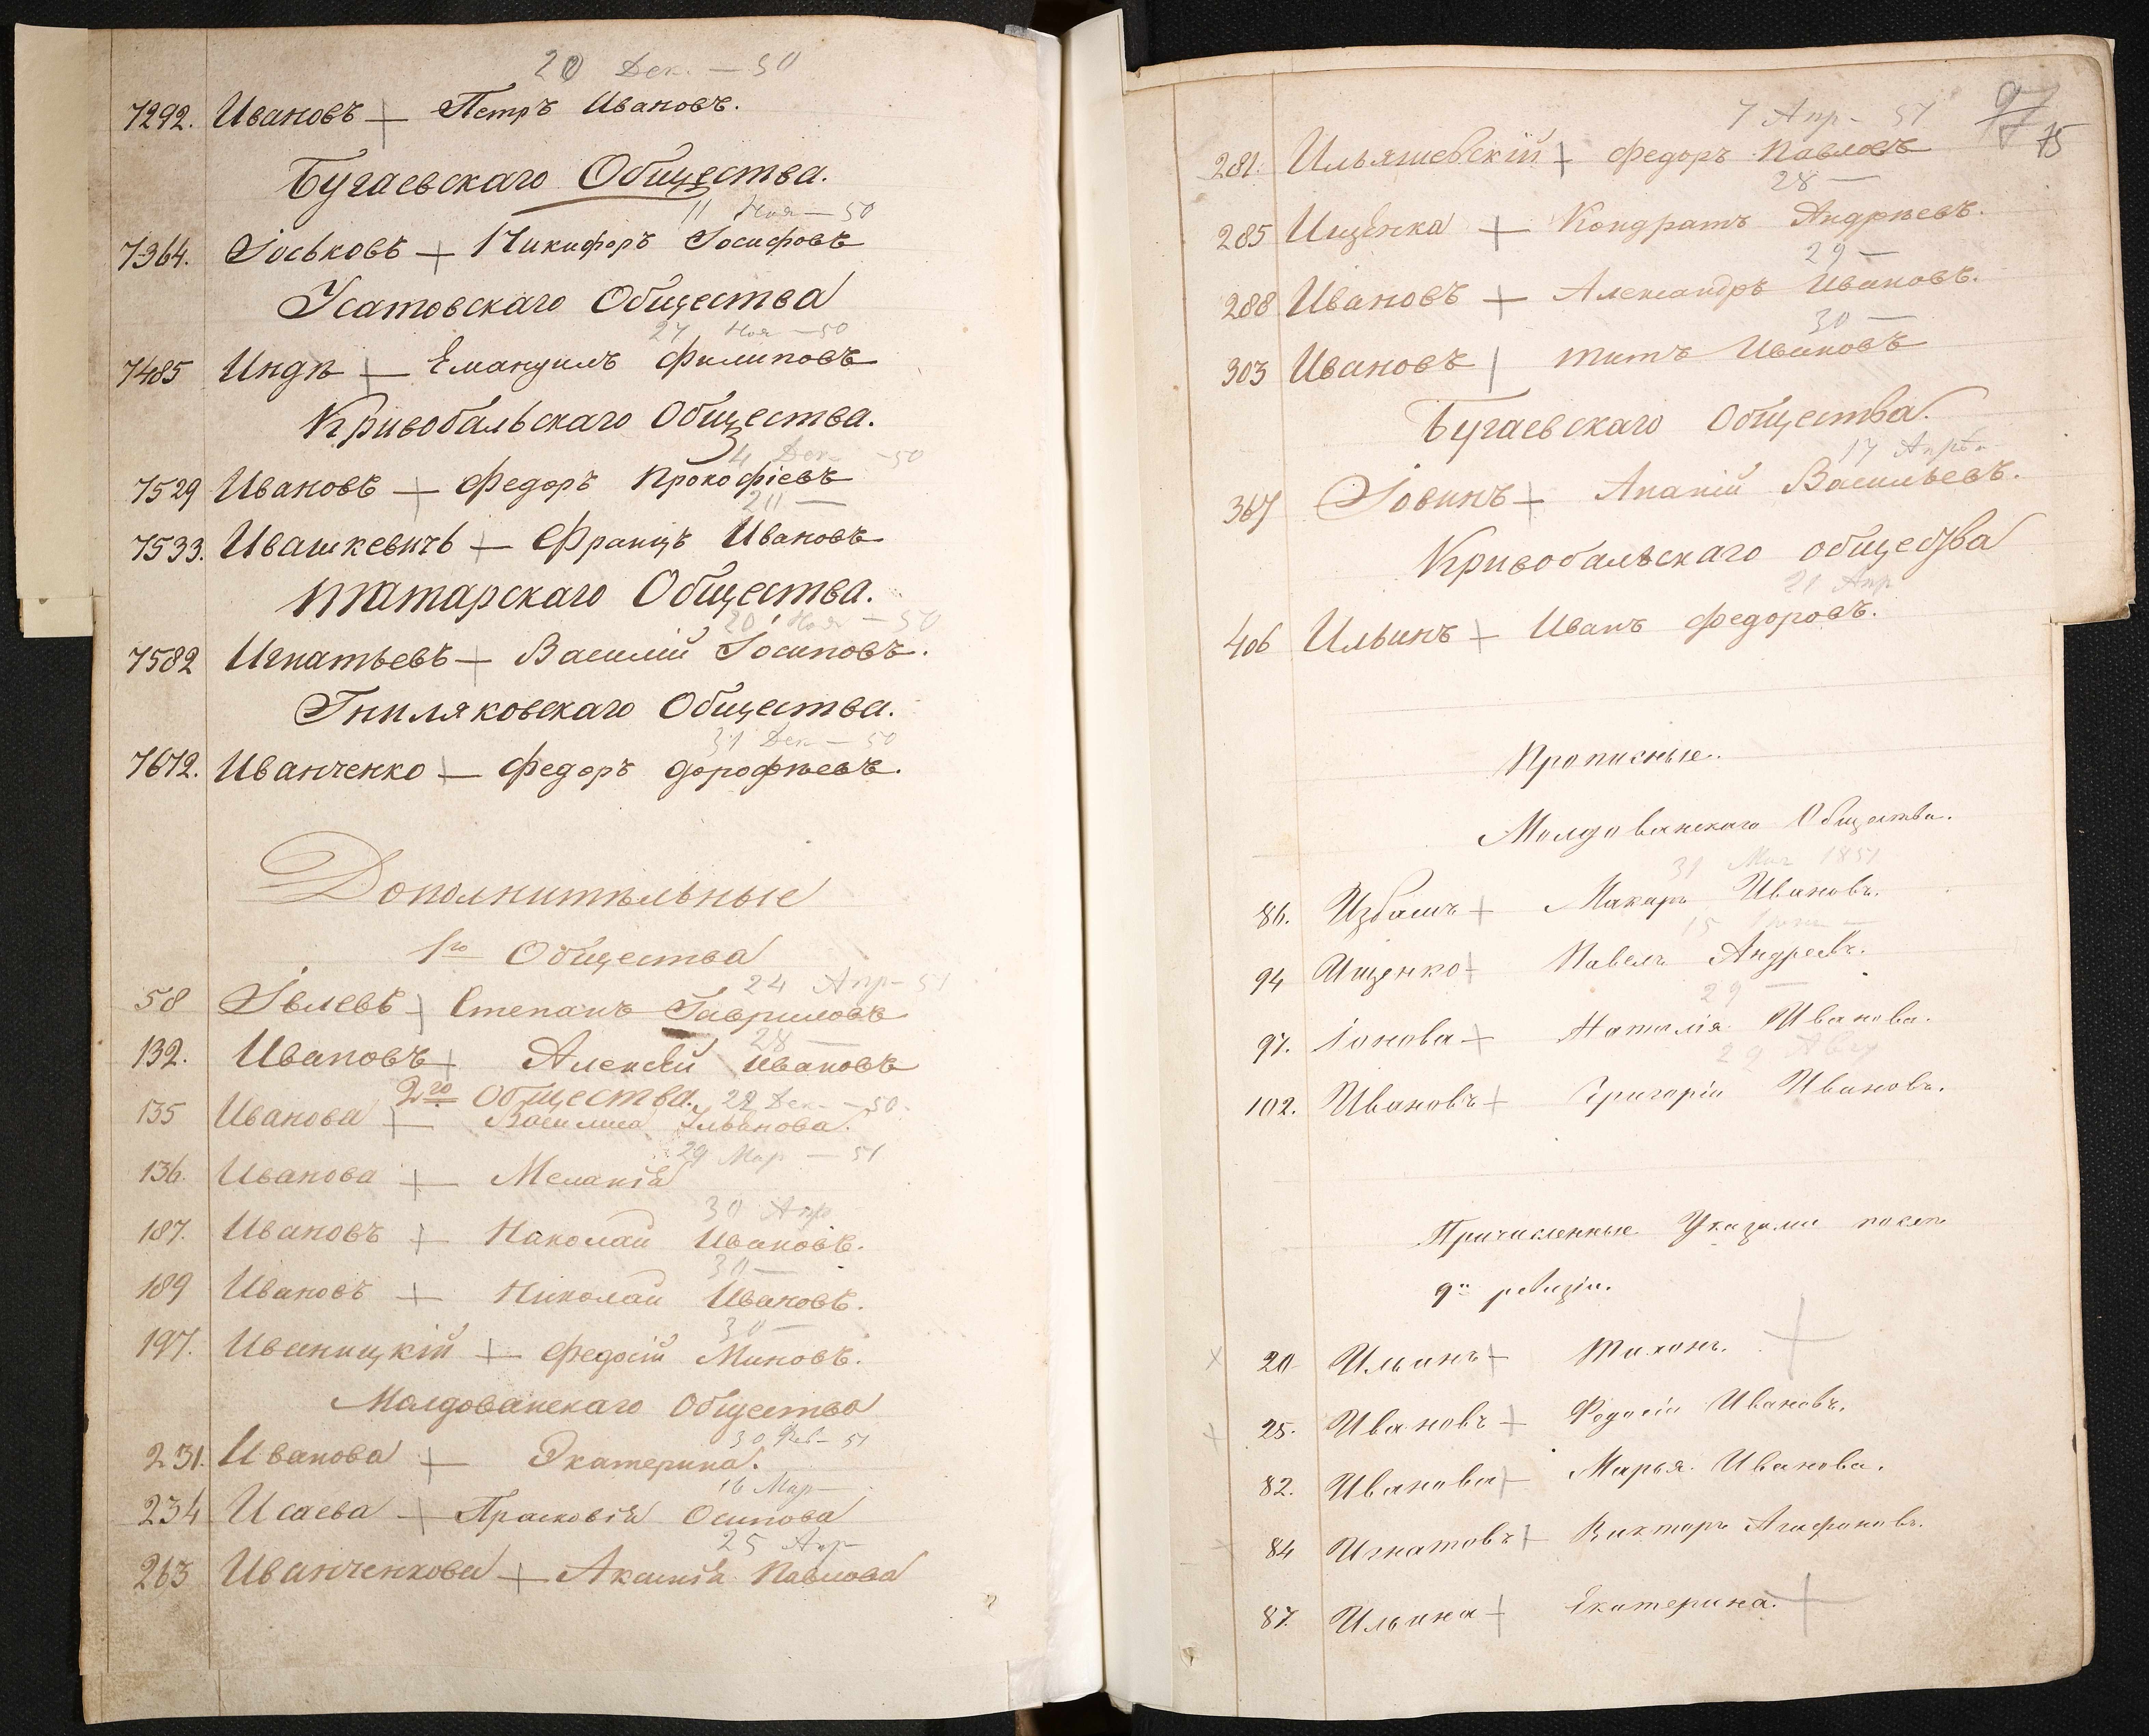 20 Дек. — 50
7292. Ивановъ — Петръ Ивановъ.
Бугаевскаго Общества.
11 Ноя — 50
7364. Іоськовъ — Никифоръ Іосифовъ
Усатовскаго Общества
27 Ноя — 50
7485 Индѣ — Емануилъ Филиповъ
Кривобальскаго Общества.
4 Дек — 50
7529 Ивановъ — Федоръ Прокофіевъ
7533. Ивашкевичъ — Францъ Ивановъ
Татарскаго Общества.
20 Ноя — 50
7582 Игнатьевъ — Василій Іосиповъ.
Гниляковскаго Общества.
31 Дек — 50
7672. Иванченко — Федоръ Дорофѣевъ.
Дополнительные
1го Общества
24 Апр — 51
58 Іевлевъ Степанъ Гавриловъ
28 —
132. Ивановъ Алексѣй Ивановъ
2го Общества. 28 Дек — 50
135 Иванова — Василиса Ильинова.
29 Мар — 51
136. Иванова — Меланія
30 Апр
187. Ивановъ — Николай Ивановъ.
30 —
189 Ивановъ — Николай Ивановъ.
30 —
197. Иваницкій — Федосій Миновъ.
Молдованскаго Общества
30 Фев — 51
231. Иванова — Екатерина.
16 Мар —
234 Исаева — Прасковія Осипова
25 Апр
263 Иванченкова — Аксинія Павлова
97
75
7 Апр — 51
281. Ильяшевскій Федоръ Павловъ
28 —
285 Ищенка — Кондратъ Андрѣевъ.
29 —
288 Ивановъ — Александръ Ивановъ.
30 —
303 Ивановъ Титъ Ивановъ
Бугаевскаго Общества.
17 Апрѣ
367 Іовинъ — Ананій Васильевъ.
Кривобальскаго общества
21 Апр
406 Ильинъ — Иванъ Федоровъ.
Прописные.
Молдованскаго Общества.
31 Мая 1851
86. Избашъ Макаръ Ивановъ.
94 Ищенко Павелъ Андреевъ.
29 —
97. Іонова — Наталія Иванова.
29 Авгу
102. Ивановъ Григорій Ивановъ.
Причисленные Указами послѣ
9й ревизіи.
20 Ильинъ — Тихонъ.
25. Ивановъ Федосій Ивановъ.
82. Иванова Марья Иванова.
84 Игнатовъ Викторъ Агафоновъ.
87. Ильина Екатерина.